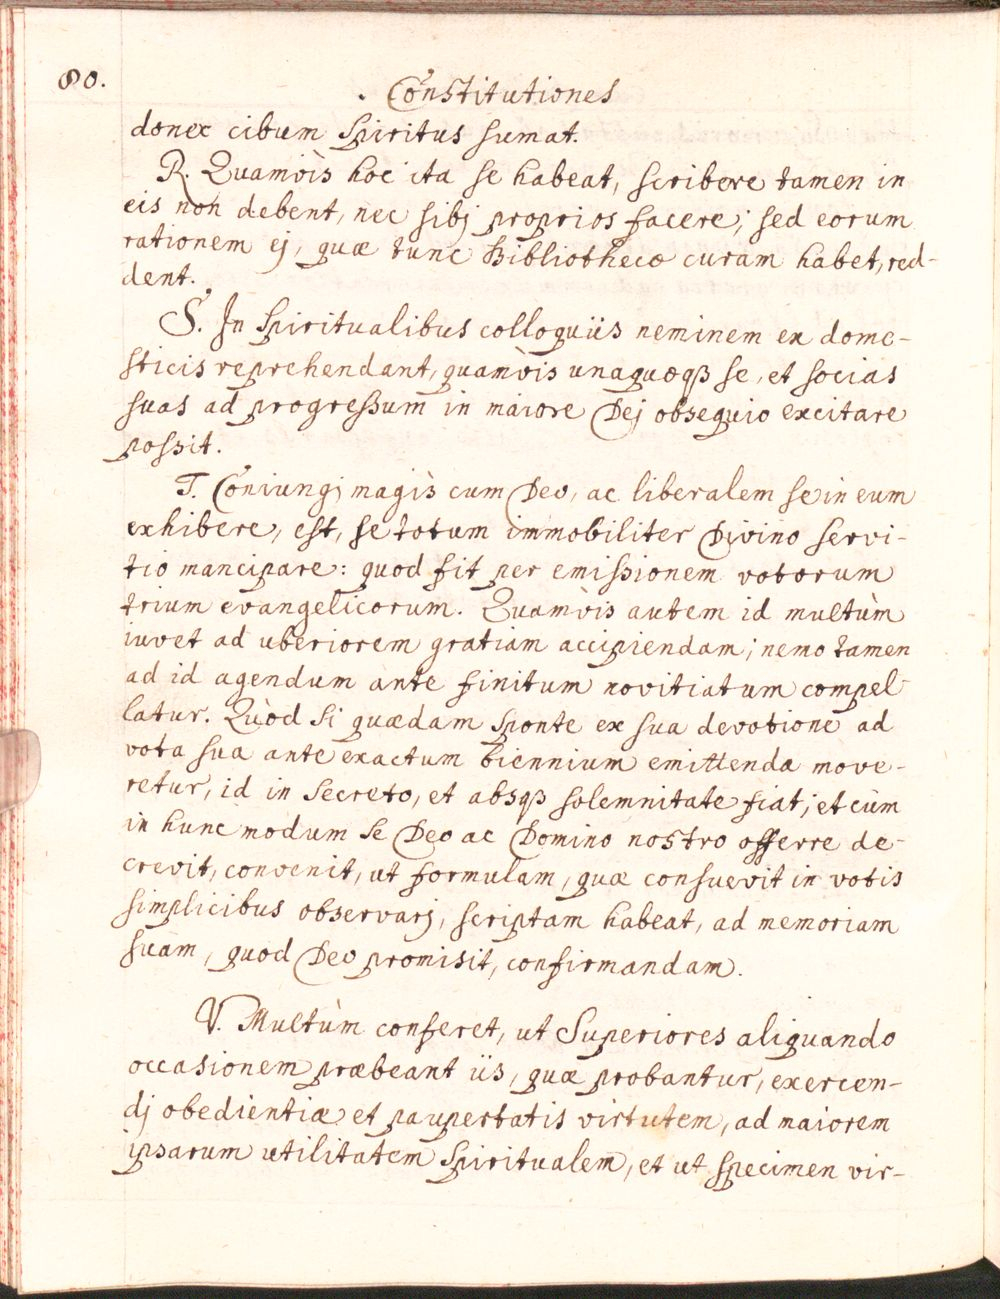 80.
Constitutiones
donec cibum Spiritus sumat.
R. Quamvis hoc ita se habeat, scribere tamen in
eis non debent, nec sibj proprios facere; sed eorum
rationem ej, quæ tunc Bibliothecæ curam habet, red-
dent.
S. In Spiritualibus colloquiis neminem ex dome-
sticis reprehendant, quamvis unaquæqß se, et socias
suas ad progreßum in maiore Dej obsequio excitare
possit.
T. Coniungj magìs cum Deo, ac liberalem se in eum
exhibere, est, se totum immobiliter Divino servi-
tio mancipare: quod fit per emißionem votorum
trium evangelicorum. Quamvis autem id multùm
iuvet ad uberiorem gratiam accipiendam; nemo tamen
ad id agendum ante finitum novitiatum compel-
latur. Quòd si quædam sponte ex sua devotione ad
vota sua ante exactum biennium emittenda move-
retur, id in secreto, et absqß solemnitate fiat; et cùm
in hunc modum se Deo ac Domino nostro offerre de-
crevit, convenit, ut formulam, quæ consuevit in votis
simplicibus observarj, scriptam habeat, ad memoriam
suam, quod Deo promisit, confirmandam.
V. Multùm conferet, ut Superiores aliquando
occasionem præbeant iis, quæ probantur, exercen-
dj obedientiæ et paupertatis virtutem, ad maiorem
ipsarum utilitatem Spiritualem, et ut specimen vir-